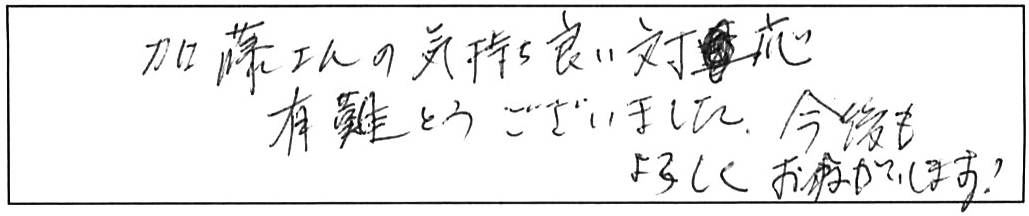 加藤さんの気持ち良い対応
有難とうございました。今後も
よろしくおねがいします!